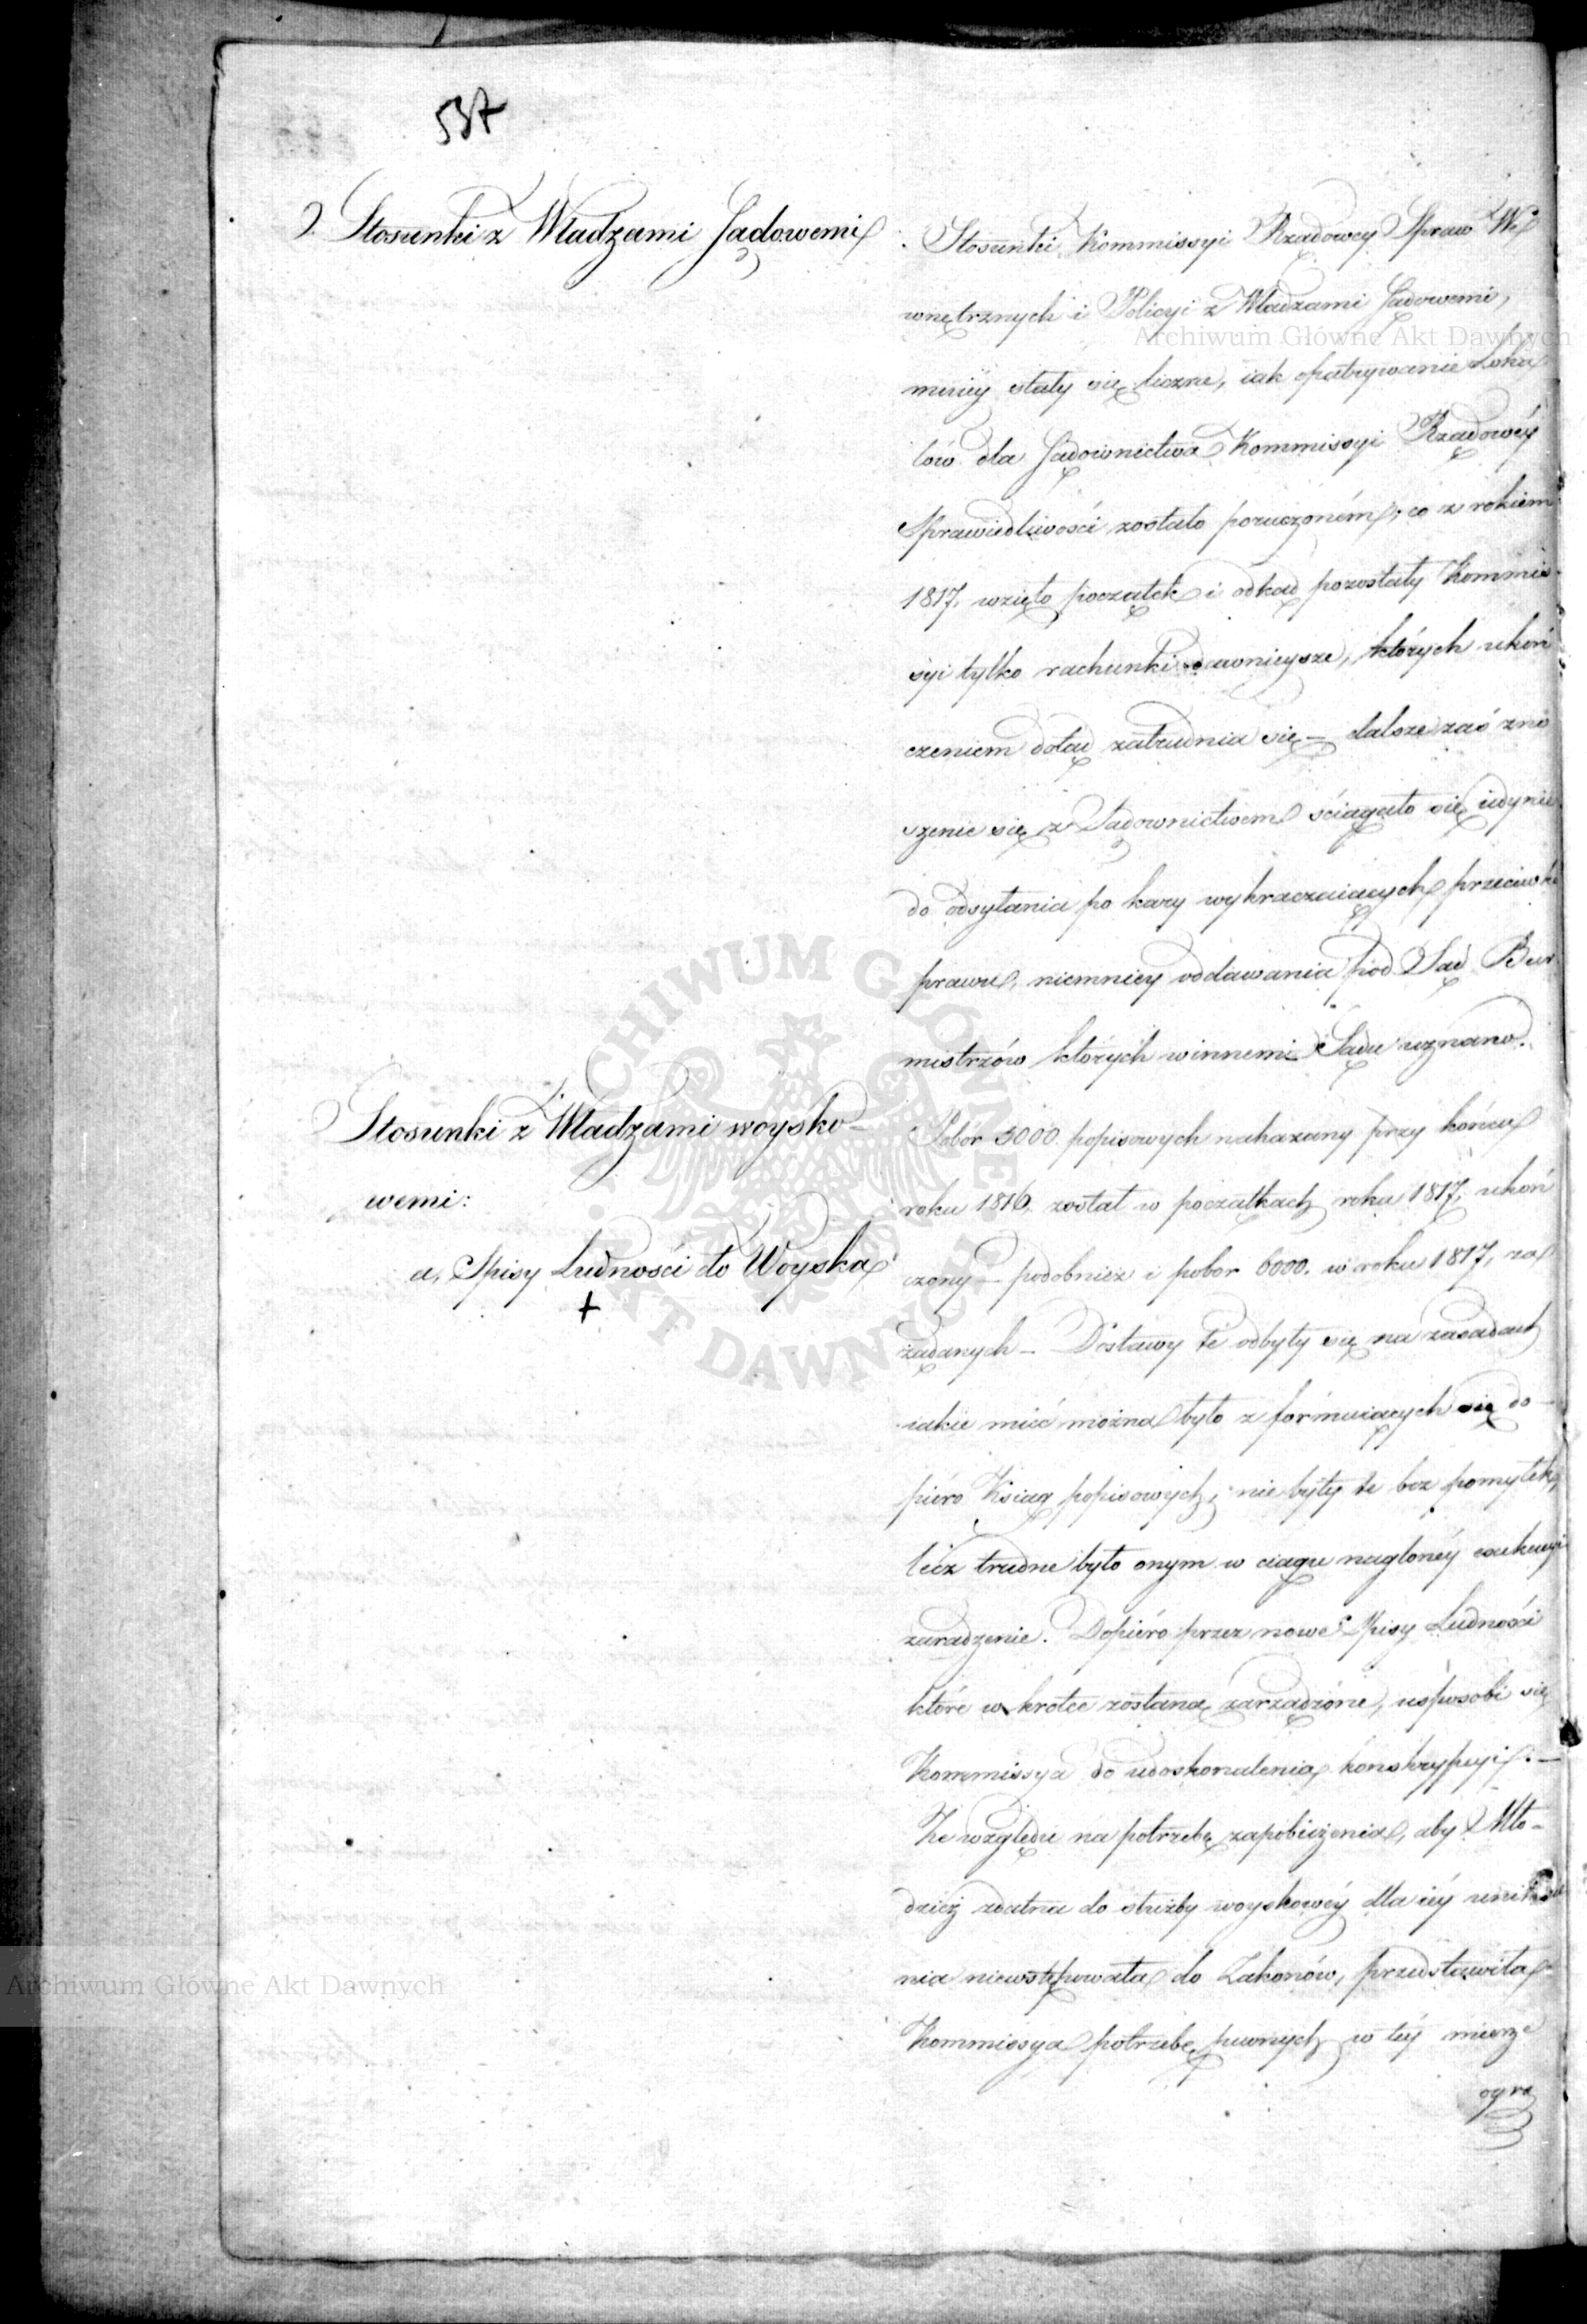 537
2. Stosunki z Władzami Sądowemi
Stosunki Kommissyi Rządowey Spraw We
wnętrznych i Policyi z Władzami Sądowemi,
mniéy stały się liczne, iak opatrywanie Loka
lów dla Sądownictwa Kommissyi Rządowéy
Sprawiedliwości zostało poruczoném, co z rokiem
1817. wzięło początek i odkąd pozostały Kommis-
syi tylko rachunki dawnieysze, których ukoń
czeniem dotąd zatrudnia się – dalsze zaś zno
szenie się z Sądownictwem ściągało się iedynie
do odsyłania po kary wykraczaiących przeciwko
prawu, niemniey oddawania pod Sąd Bur
mistrzów których winnemi Sądu uznano.
Stosunki z Władzami woysko-
wemi:
a, Spisy Ludności do Woyska
+
Pobór 5000 popisowych nakazany przy końcu
roku 1816. został w początkach roku 1817, ukoń
czony – podobnież i pobor 6000. w roku 1817, za
żądanych – Dostawy te odbyły się na zasadach
iakie mieć można było z formuiących się do-
piéro Ksiąg popisowych, nie były te bez pomyłek,
lecz trudne było onym w ciągu nagloney exekucyi
zaradzenie. Dopiéro przez nowe Spisy Ludności
które w krotce zostaną zarządzone, usposobi się
Kommissya do udoskonalenia konskrypcyi. –
Ze względu na potrzebę zapobieżenia, aby Mło-
dzież zdatna do służby woyskowéy dla iéy unikie
nia niewstępowała do Zakonów, przedstawiła
Kommissya potrzebę pewnych w téy mierze
ogra
Archiwum Główne Akt Dawnych
Archiwum Główne Akt Dawnych
ARCHIWUM GŁÓWNE · AKT DAWNYCH ·